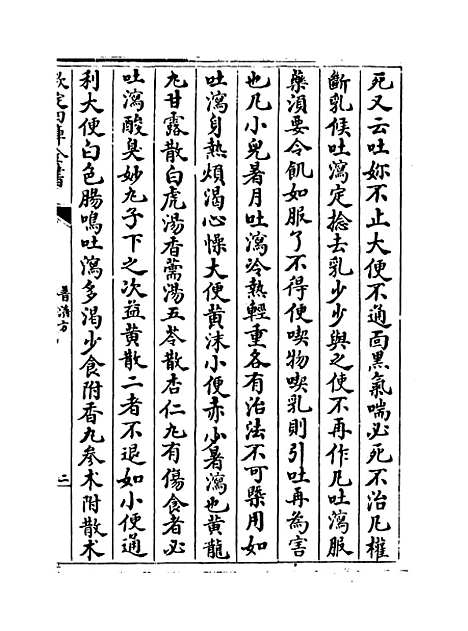 死又云吐妳不止大便不通面黒氣喘必死不治凡攉
斷乳候吐瀉定捻去乳少少與之使不再作凡吐瀉服
藥湏要令飢如服了不得使喫物喫乳則引吐再為害
也凡小兒暑月吐瀉冷熱輕重各有治法不可槩用如
吐瀉身熱煩渴心懆大便黄沫小便赤少暑瀉也黄龍
丸甘露散白虎湯香薷湯五苓散杏仁丸有傷食者必
吐瀉酸臭妙丸子下之次益黄散二者不退如小便通
利大便白色腸鳴吐瀉多渴少食附香丸參术附散术
欽定四庫全書
普濟方
二